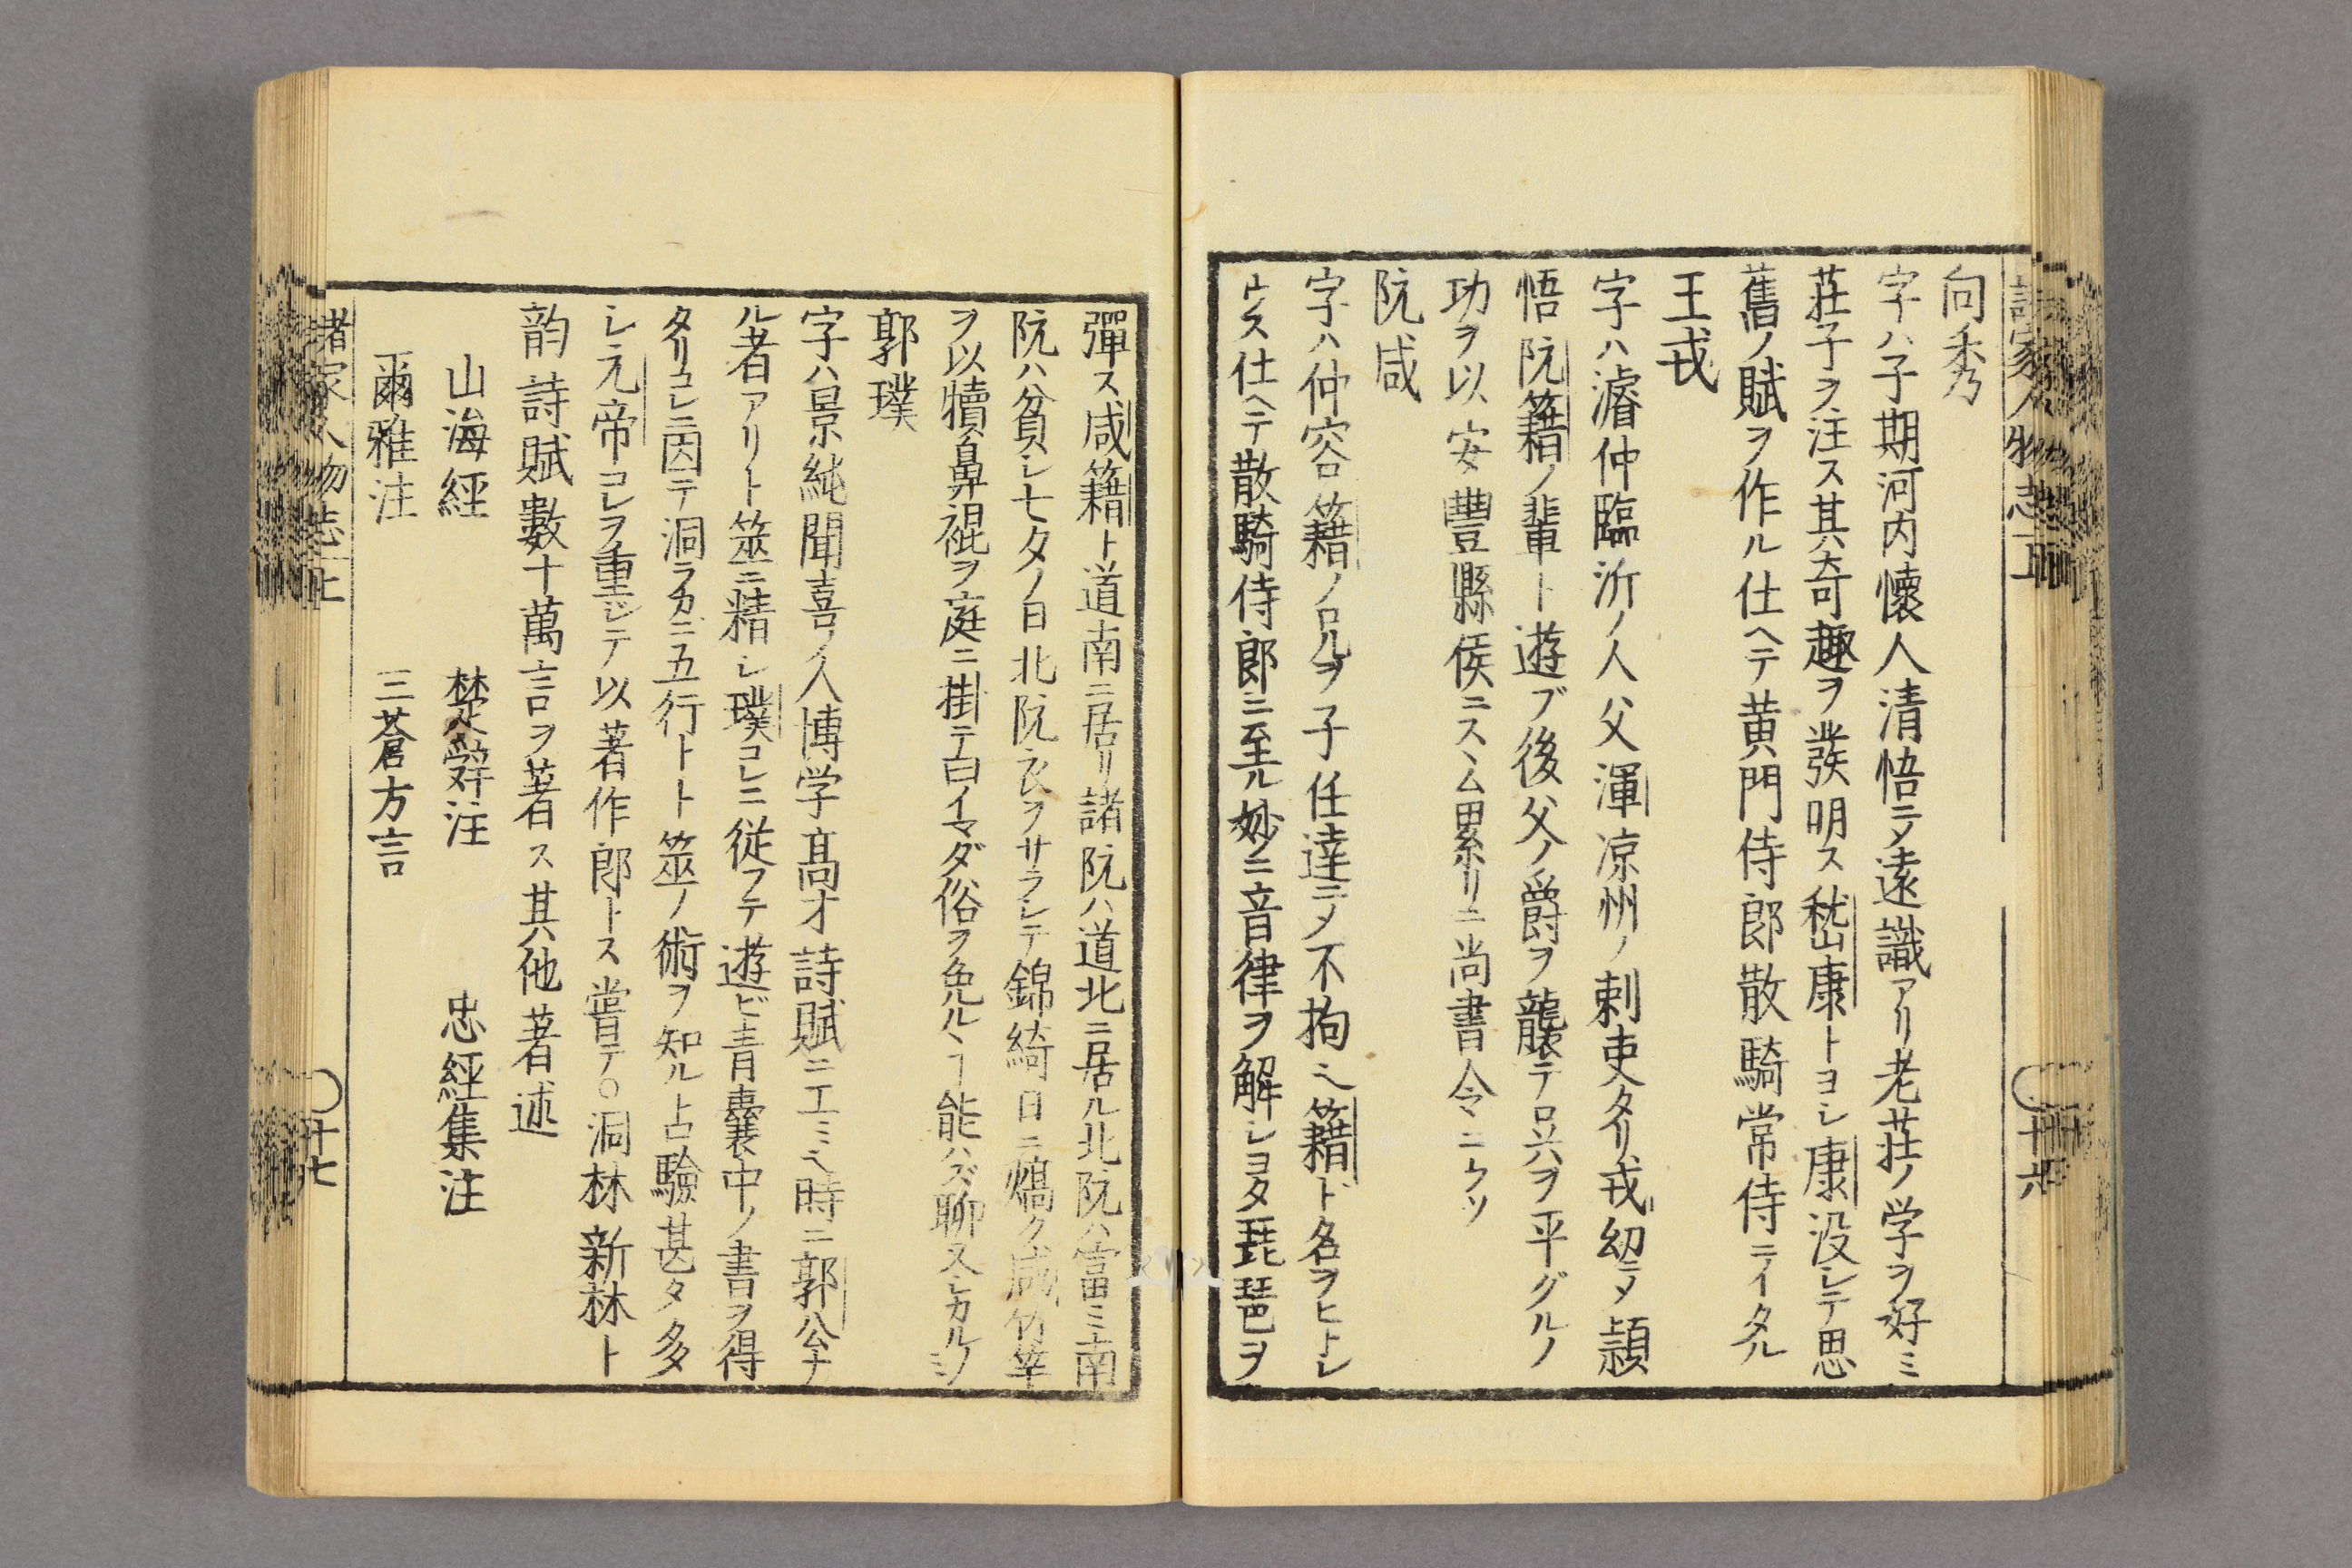 諸家人物志上
十六
向秀
字ハ子期河内懐人清悟ニメ遠識アリ老荘ノ学ヲ好ミ
荘子ヲ注ス其奇趣ヲ発明ス嵆康トヨシ康没シテ思
舊ノ賦ヲ作ル仕ヘテ黄門侍郎散騎常侍ニイタル
王戎
字ハ濬仲臨沂ノ人父渾凉州ノ刺吏タリ戎幼ニメ頴
悟阮籍ノ輩ト遊ブ後父ノ爵ヲ襲テ呉ヲ平グルノ
功ヲ以安豐縣侯ニスヽム累リニ尚書令ニウツ
阮咸
字ハ仲容籍ノ兄ヲ子任達ニメ不拘ミ籍ト名ヲヒトレ
ウス仕ヘテ散騎侍郎ニ至ル妙ニ音律ヲ解シヨク琵琶ヲ
彈ス咸籍ト道南ニ居リ諸阮ハ道北ニ居ル北阮ハ富ミ南
阮ハ貧シ七夕ノ日北阮衣ヲサラシテ錦綺日ニ熇ク咸竹竿
ヲ以犢鼻褌ヲ庭ニ掛テ曰イマダ俗ヲ免ルヽヿ能ハズ聊又シカルノミ
郭璞
字ハ景純聞喜ノ人博学高才詩賦ニ工ミ時ニ郭公ナ
ル者アリト筮ニ精シ璞コレニ從フテ遊ビ青囊中ノ書ヲ得
タリコレニ因テ洞ラカニ五行卜筮ノ術ヲ知ル占驗甚タ多
シ元帝コレヲ重ジテ以著作郎トス嘗テ○洞林新林ト
韵詩賦數十萬言ヲ著ス其他著述
山海經　楚辭注　忠經集注
爾雅注　三蒼方言
諸家人物志上
十七